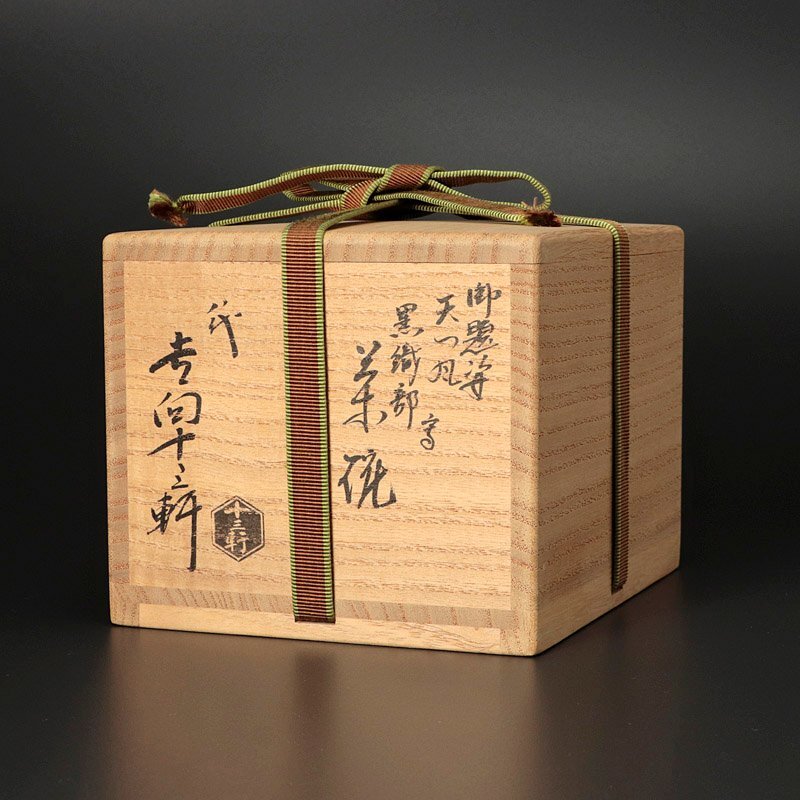 御題姿
天つ風
写
黒織部
茶碗
代
吉向十三軒
十三軒